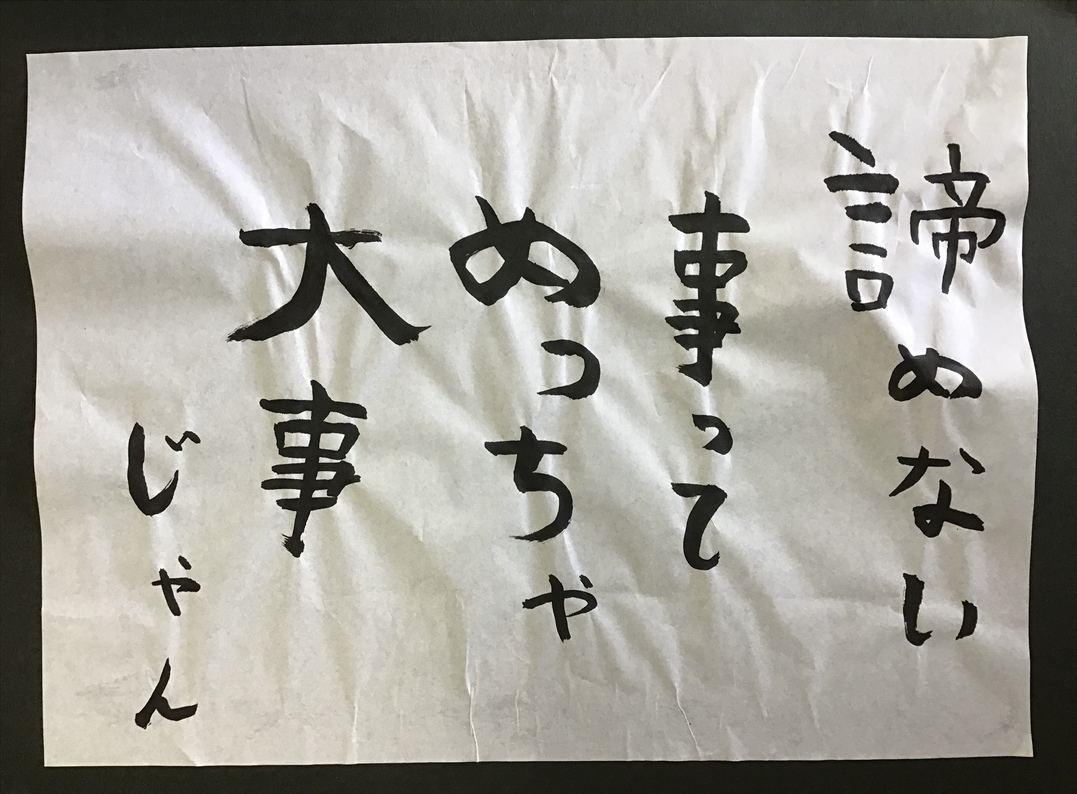 諦めない
事って
めっちゃ
大事
じゃん